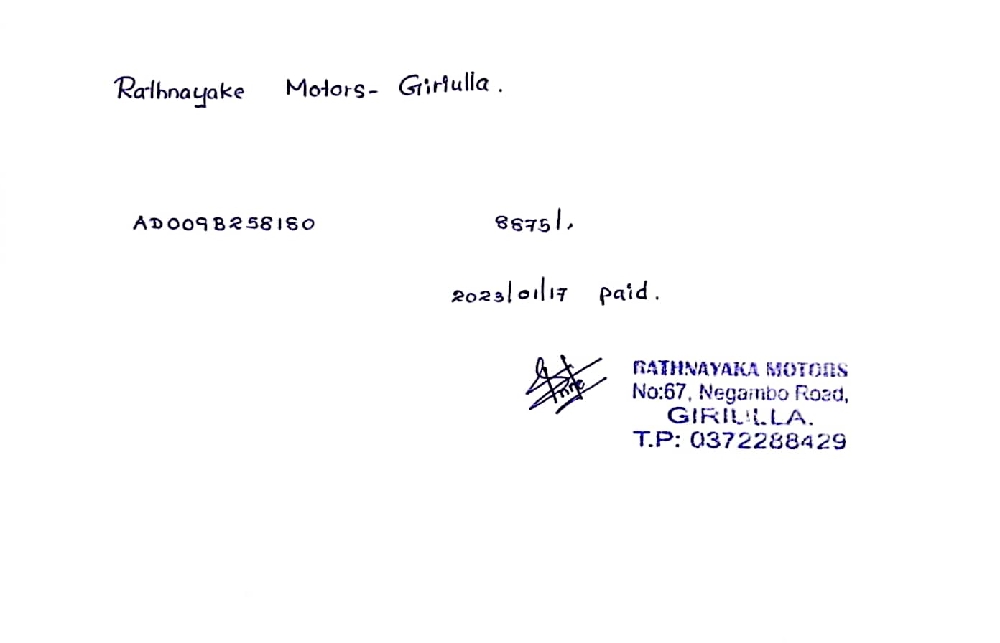 Rathnayake Motors- Giriulla.
AD009B258180 8875/.
2023/01/17 paid.
RATHNAYAKA MOTORS
No:67, Negambo Road,
GIRIULLA.
T.P: 0372288429